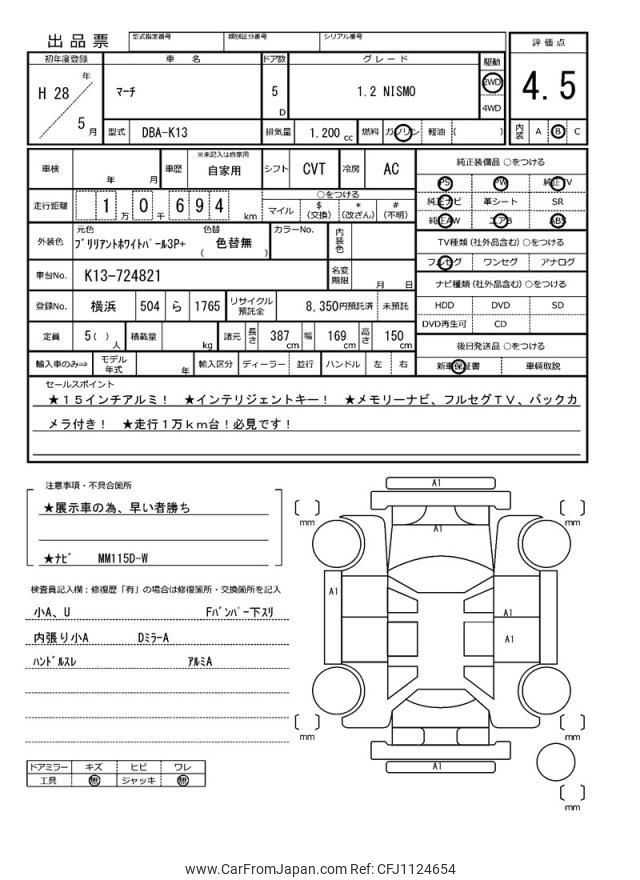 出品票 型式指定番号 類別区分番号 シリアル番号 評価点
初年度登録 車名 ドア数 グレード 駆動
H 28 年 5 月 マーチ 5 D 1.2 NISMO 2WD 4WD 4.5
型式 DBA-K13 排気量 1.200 cc 燃料 ガソリン 軽油 ( ) 内装 A B C
車検 年 月 車歴 ※未記入は自家用 自家用 シフト CVT 冷房 AC
走行距離 1 万 0 千 6 9 4 km ○をつける マイル $ (交換) * (改ざん) # (不明)
外装色 元色 ブリリアントホワイトパール3P+ 色替 ( 色替無 ) カラーNo. 内装色
車台No. K13-724821 名変期限 月 日
登録No. 横浜 504 ら 1765 リサイクル預託金 8,350円預託済 未預託
定員 5( ) 人 積載量 kg 諸元 長さ 387 cm 幅 169 cm 高さ 150 cm
輸入車のみ⇒ モデル年式 年 輸入区分 ディーラー 並行 ハンドル 左 右
純正装備品 ○をつける
PS PW 純正TV
純正ナビ 革シート SR
純正AW エアB ABS
TV種類 (社外品含む) ○をつける
フルセグ ワンセグ アナログ
ナビ種類 (社外品含む) ○をつける
HDD DVD SD
DVD再生可 CD
後日発送品 ○をつける
新車保証書 車輌取説
セールスポイント
★15インチアルミ! ★インテリジェントキー! ★メモリーナビ、フルセグTV、バックカ
メラ付き! ★走行1万km台!必見です!
注意事項・不具合箇所
★展示車の為、早い者勝ち
★ナビ MM115D-W
検査員記入欄:修復歴「有」の場合は修復箇所・交換箇所を記入
小A、U Fバンパー下スリ
内張り小A DミラーA
ハンドルスレ アルミA
ドアミラー キズ ヒビ ワレ
工具 無 ジャッキ 無
A1
mm mm
A1
A1 A1
A1
mm mm
A1
mm
www.CarFromJapan.com Ref: CFJ1124654